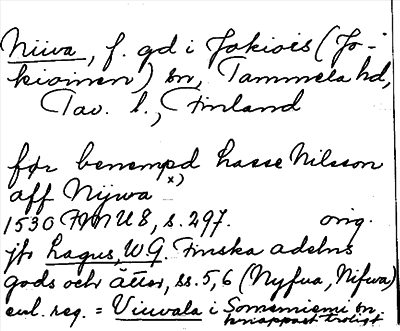 Niiva, f. gd i Jokiois (Jo-
kioinen) sn, Tammela hd,
Tav. l., Finland
før benempd Lasse Nilsson
aff Nijwa x)
1530 FMU 8, s. 297. orig.
jfr Lagus, W.G. Finska adelns
gods och ätter, ss. 5, 6 (Nyfua, Nifwa)
enl. reg. = Viuvala i Somerniemi sn,
knappast troligt